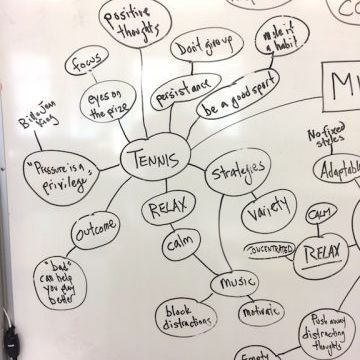 positive
thoughts
focus
Don't give up
make it
a habit
eyes on
the prize
persistance
be a good sport
Billie Jean
King
"Pressure is a
privilege"
TENNIS
strategies
No fixed
styles
Adaptable
RELAX
variety
CALM
outcome
calm
CONCENTRATED
RELAX
"bad"
can help
you play
better
music
block
distractions
motivate
Push away
distracting
thoughts
Empty